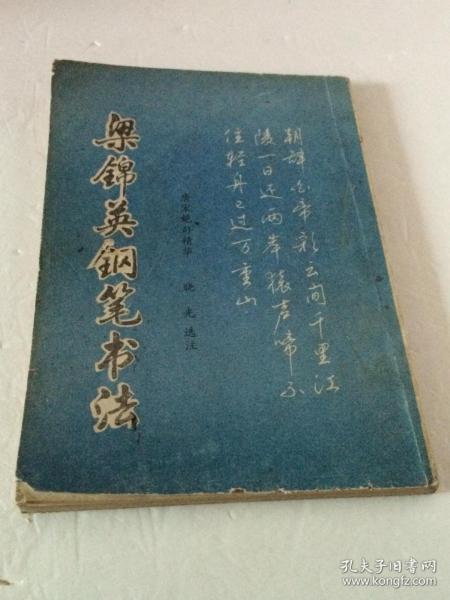 梁锦英钢笔书法
唐宋绝句精华 晓光选注
朝辞白帝彩云间千里江
陵一日还两岸猿声啼不
住轻舟已过万重山
孔夫子旧书网
www.kongfz.com